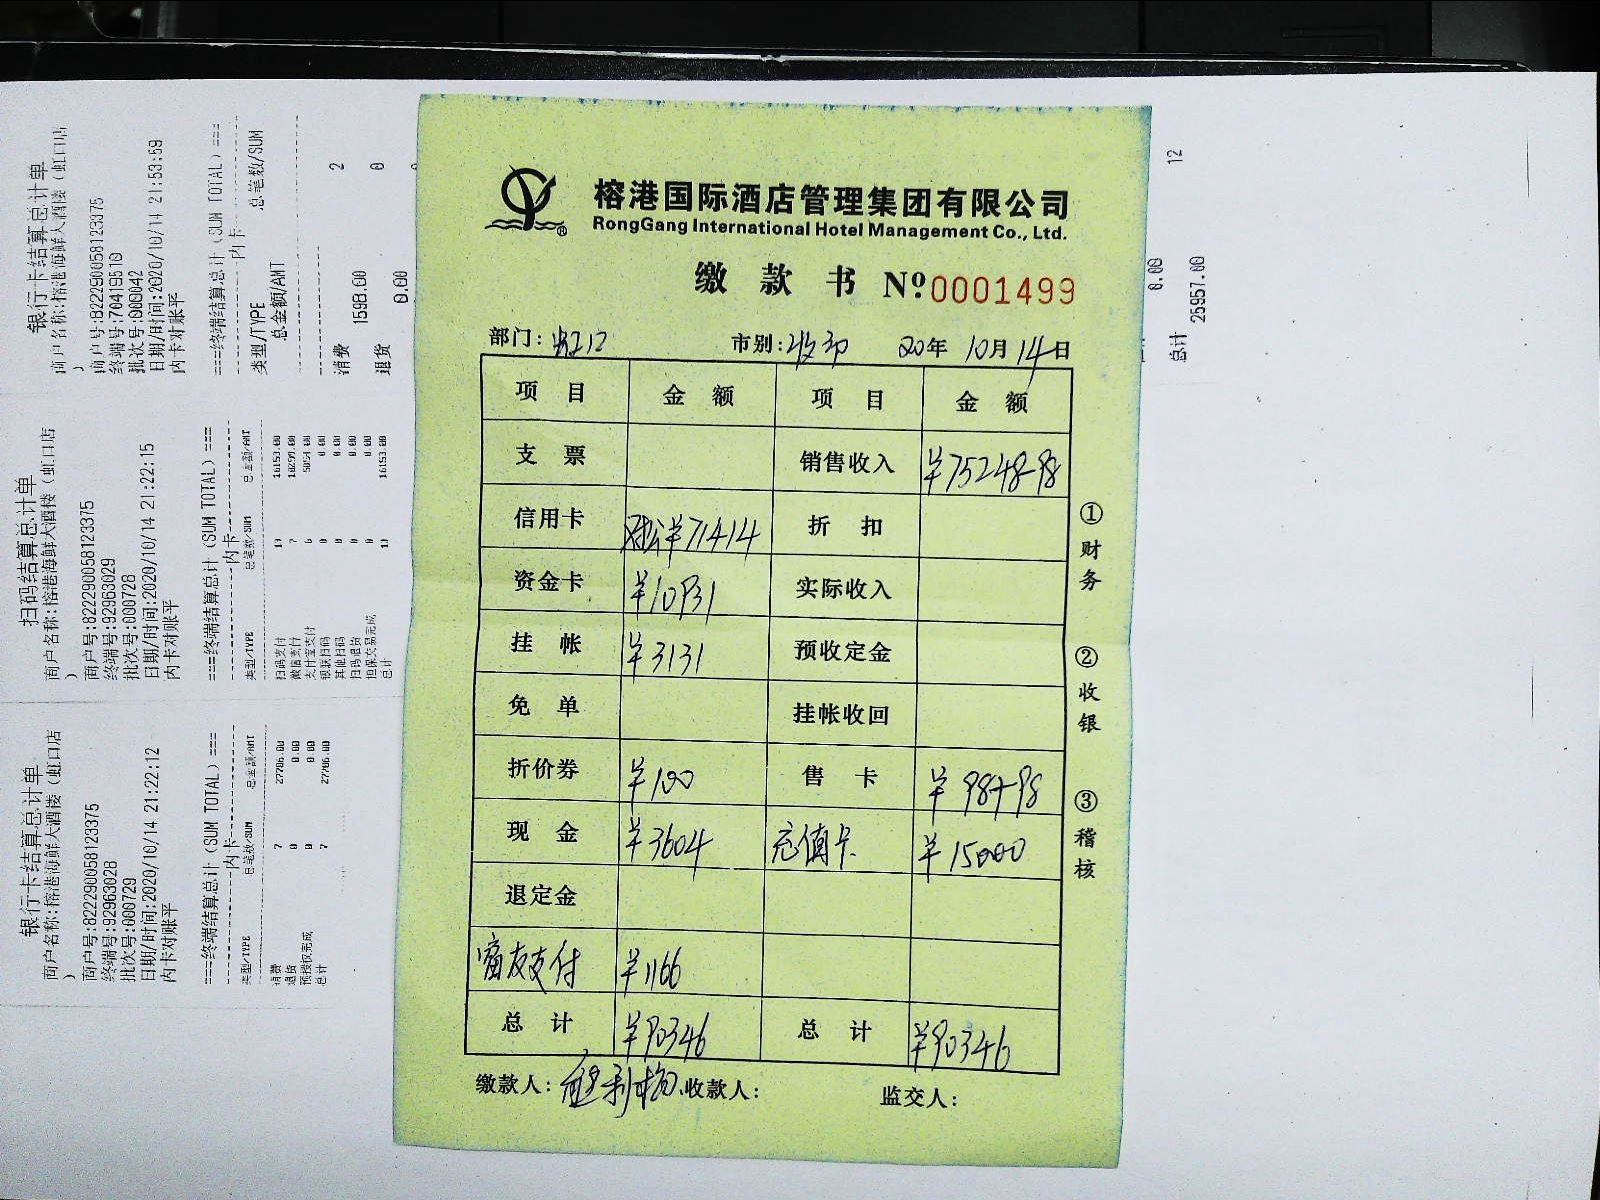 榕港国际酒店管理集团有限公司
RongGang International Hotel Management Co., Ltd.
缴款书 Nº 0001499
部门: 虹口 市别: 20年 10月 14日
项目 金额 项目 金额
支票 销售收入 ¥75248-98
信用卡 ¥71414 折扣
资金卡 ¥10931 实际收入
挂帐 ¥3131 预收定金
免单 挂帐收回
折价券 ¥100 售卡 ¥98+98
现金 ¥3604 充值卡 ¥15000
退定金
支付 ¥1166
总计 ¥90346 总计 ¥90346
缴款人: 收款人: 监交人:
①财务
②收银
③稽核
银行卡结算总计单
商户名称:榕港海鲜大酒楼（虹口店
）
商户号:822290058123375
终端号:70419510
批次号:000042
日期/时间:2020/10/14 21:53:59
内卡对账平
===终端结算总计(SUM TOTAL)===
内卡
类型/TYPE 总笔数/SUM
总金额/AMT
消费 2
1598.00
退货 0
0.00
0.00
总计 12
25957.00
扫码结算总计单
商户名称:榕港海鲜大酒楼（虹口店
）
商户号:822290058123375
终端号:92963029
批次号:000728
日期/时间:2020/10/14 21:22:15
内卡对账平
===终端结算总计(SUM TOTAL)===
内卡
类型/TYPE 总笔数/SUM 总金额/AMT
扫码支付 13 16153.00
微信支付 7
支付宝支付 6
银联扫码 0 0.00
其他扫码 0 0.00
扫码退货 0 0.00
担保交易完成 0 0.00
总计 13 16153.00
银行卡结算总计单
商户名称:榕港海鲜大酒楼（虹口店
）
商户号:822290058123375
终端号:92963028
批次号:000729
日期/时间:2020/10/14 21:22:12
内卡对账平
===终端结算总计(SUM TOTAL)===
内卡
类型/TYPE 总笔数/SUM 总金额/AMT
消费 7 27706.00
退货 0 0.00
预授权完成 0 0.00
总计 7 27706.00